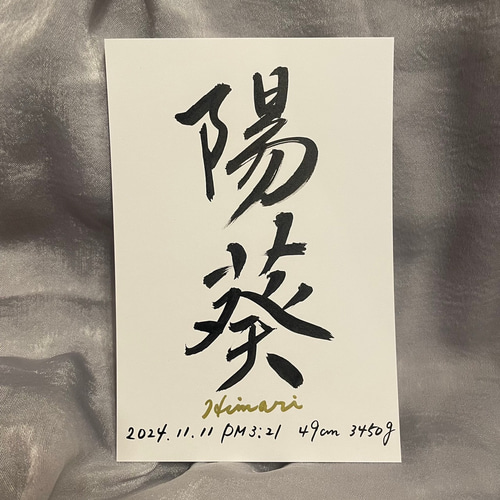 陽葵
Himari
2024.11.11 PM3:21 49cm 3450g